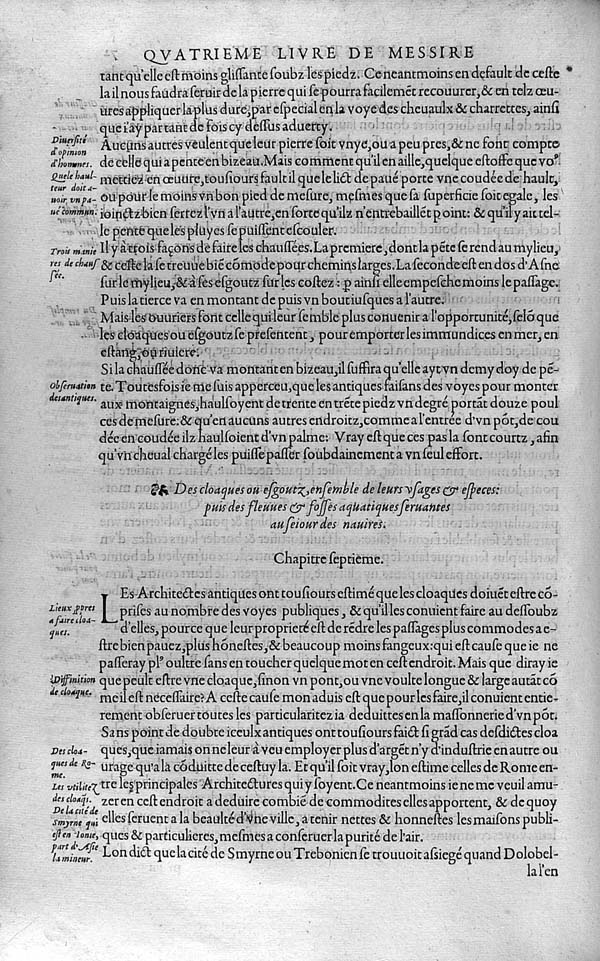 QVATRIEME LIVRE DE MESSIRE
tant qu'elle est moins glissante soubz les piedz. Ce neantmoins en default de ceste
la il nous faudra seruir de la pierre qui se pourra facilemẽt recouurer, & en telz œu-
ures appliquer la plus dure, par especial en la voye des cheuaulx & charrettes, ainsi
que i'ay par tant de fois cy dessus aduerty.
Diuersité
d'opinion
d'hommes.
Aucuns autres veulent que leur pierre soit vnye, ou a peu pres, & ne font compte
de celle qui a pente en bizeau. Mais comment qu'il en aille, quelque estoffe que voꝰ
Quele haul-
teur doit a-
uoir vn pa-
ué commun.
mettiez en œuure, tousiours fault il que le lict de paué porte vne coudée de hault,
ou pour le moins vn bon pied de mesure, mesmes que sa superficie soit egale, les
ioinctz bien serrez l'vn a l'autre, en sorte qu'ilz n'entrebaillẽt point: & qu'il y ait tel-
le pente que les pluyes se puissent escouler.
Trois manie
res de chaus
sée.
Il y a trois façons de faire les chaussées. La premiere, dont la pẽte se rend au mylieu,
& ceste la se treuue biẽ cõmode pour chemins larges. La seconde est en dos d'Asne
sur le mylieu, & a ses esgoutz sur les costez: p ainsi elle empesche moins le passage.
Puis la tierce va en montant de puis vn bout iusques a l'autre.
Mais les ouuriers font celle qui leur semble plus conuenir a l'opportunité, selõ que
les cloaques ou esgoutz se presentent, pour emporter les immundices en mer, en
estang, ou riuiere.
Si la chaussée donc va montant en bizeau, il suffira qu'elle ayt vn demy doy de pẽ-
Obseruation
des antiques.
te. Toutesfois ie me suis apperceu, que les antiques faisans des voyes pour monter
aux montaignes, haulsoyent de trente en trẽte piedz vn degré portãt douze poul
ces de mesure: & qu'en aucuns autres endroitz, comme a l'entrée d'vn põt, de cou
dée en coudée ilz haulsoient d'vn palme: Vray est que ces pas la sont courtz, afin
qu'vn cheual chargé les puisse passer soubdainement a vn seul effort.
Des cloaques ou esgoutz, ensemble de leurs vsages & especes:
puis des fleuues & fosses aquatiques seruantes
au seiour des nauires.
Chapitre septieme.
Lieux ppres
a faire cloa-
ques.
LEs Architectes antiques ont tousiours estimé que les cloaques doiuẽt estre cõ-
prises au nombre des voyes publiques, & qu'il les conuient faire au dessoubz
d'elles, pource que leur proprieté est de rẽdre les passages plus commodes a e-
stre bien pauez, plus hõnestes, & beaucoup moins fangeux: qui est cause que ie ne
passeray plꝰ oultre sans en toucher quelque mot en cest endroit. Mais que diray ie
Diffinition
de cloaque.
que peult estre vne cloaque, sinon vn pont, ou vne voulte longue & large autãt cõ
me il est necessaire? A ceste cause mon aduis est que pour les faire, il conuient entie-
rement obseruer toutes les particularitez ia deduittes en la massonnerie d'vn põt.
Sans point de doubte iceulx antiques ont tousiours faict si grãd cas desdictes cloa
Des cloa-
ques de Ro-
me.
ques, que iamais on ne leur à veu employer plus d'argẽt n'y d'industrie en autre ou
urage qu'a la cõduitte de cestuy la. Et qu'il soit vray, lon estime celles de Rome en-
tre les principales Architectures qui y soyent. Ce neantmoins ie ne me veuil amu-
Les vtilitez
des cloaqs.
zer en cest endroit a deduire combiẽ de commodites elles apportent, & de quoy
De la cité de
Smyrne qui
est en Ionie,
part d'Asie
la mineur.
elles seruent a la beaulté d'vne ville, a tenir nettes & honnestes les maisons publi-
ques & particulieres, mesmes a conseruer la purité de l'air.
Lon dict que la cité de Smyrne ou Trebonien se trouuoit assiegé quand Dolobel-
la l'en